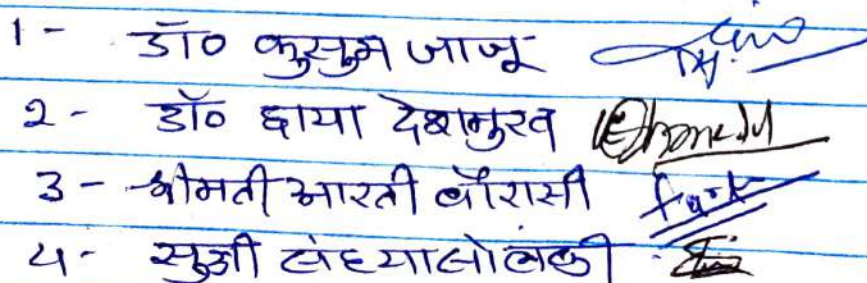 1 - डॉ० कुसुम जाजू
2 - डॉ० छाया देशमुख
3 - श्रीमती आरती बौरासी
4 - सुश्री संध्या सोलंकी